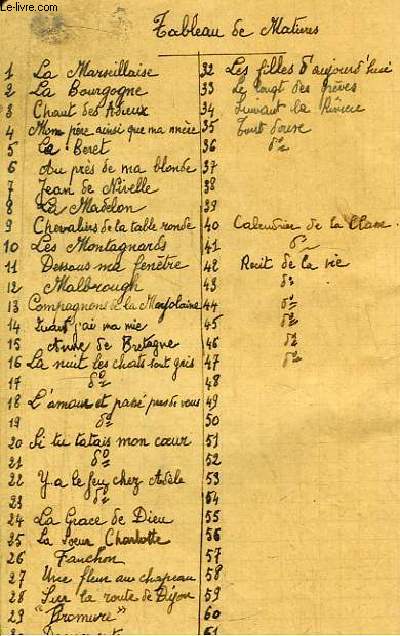 Le-livre.com
Tableau de Matières
1 La Marseillaise
2 La Bourgogne
3 Chant des Adieux
4 Mon père ainsi que ma mère
5 Le Beret
6 Au près de ma blonde
7 Jean de Nivelle
8 La Madelon
9 Chevaliers de la table ronde
10 Les Montagnards
11 Dessous ma fenêtre
12 Malbrough
13 Compagnons de la Marjolaine
14 Quand j'ai ma mie
15 Anne de Bretagne
16 La nuit les chats sont gris
17 d°
18 L'amour et passé près de vous
19 d°
20 Si tu tatais mon cœur
21 d°
22 Y a le feu chez Adèle
23 d°
24 La Grace de Dieu
25 La Soeur Charlotte
26 Fanchon
27 Une fleur au chapeau
28 Sur la route de Dijon
29
32 Les filles d'aujourd'hui
33 Le long des
34 Suivant la
35
36 d°
37
38
39
40 Calendrier de la Classe
41 d°
42 Recit de la vie
43 d°
44 d°
45 d°
46 d°
47 d°
48
49
50
51
52
53
54
55
56
57
58
59
60
61